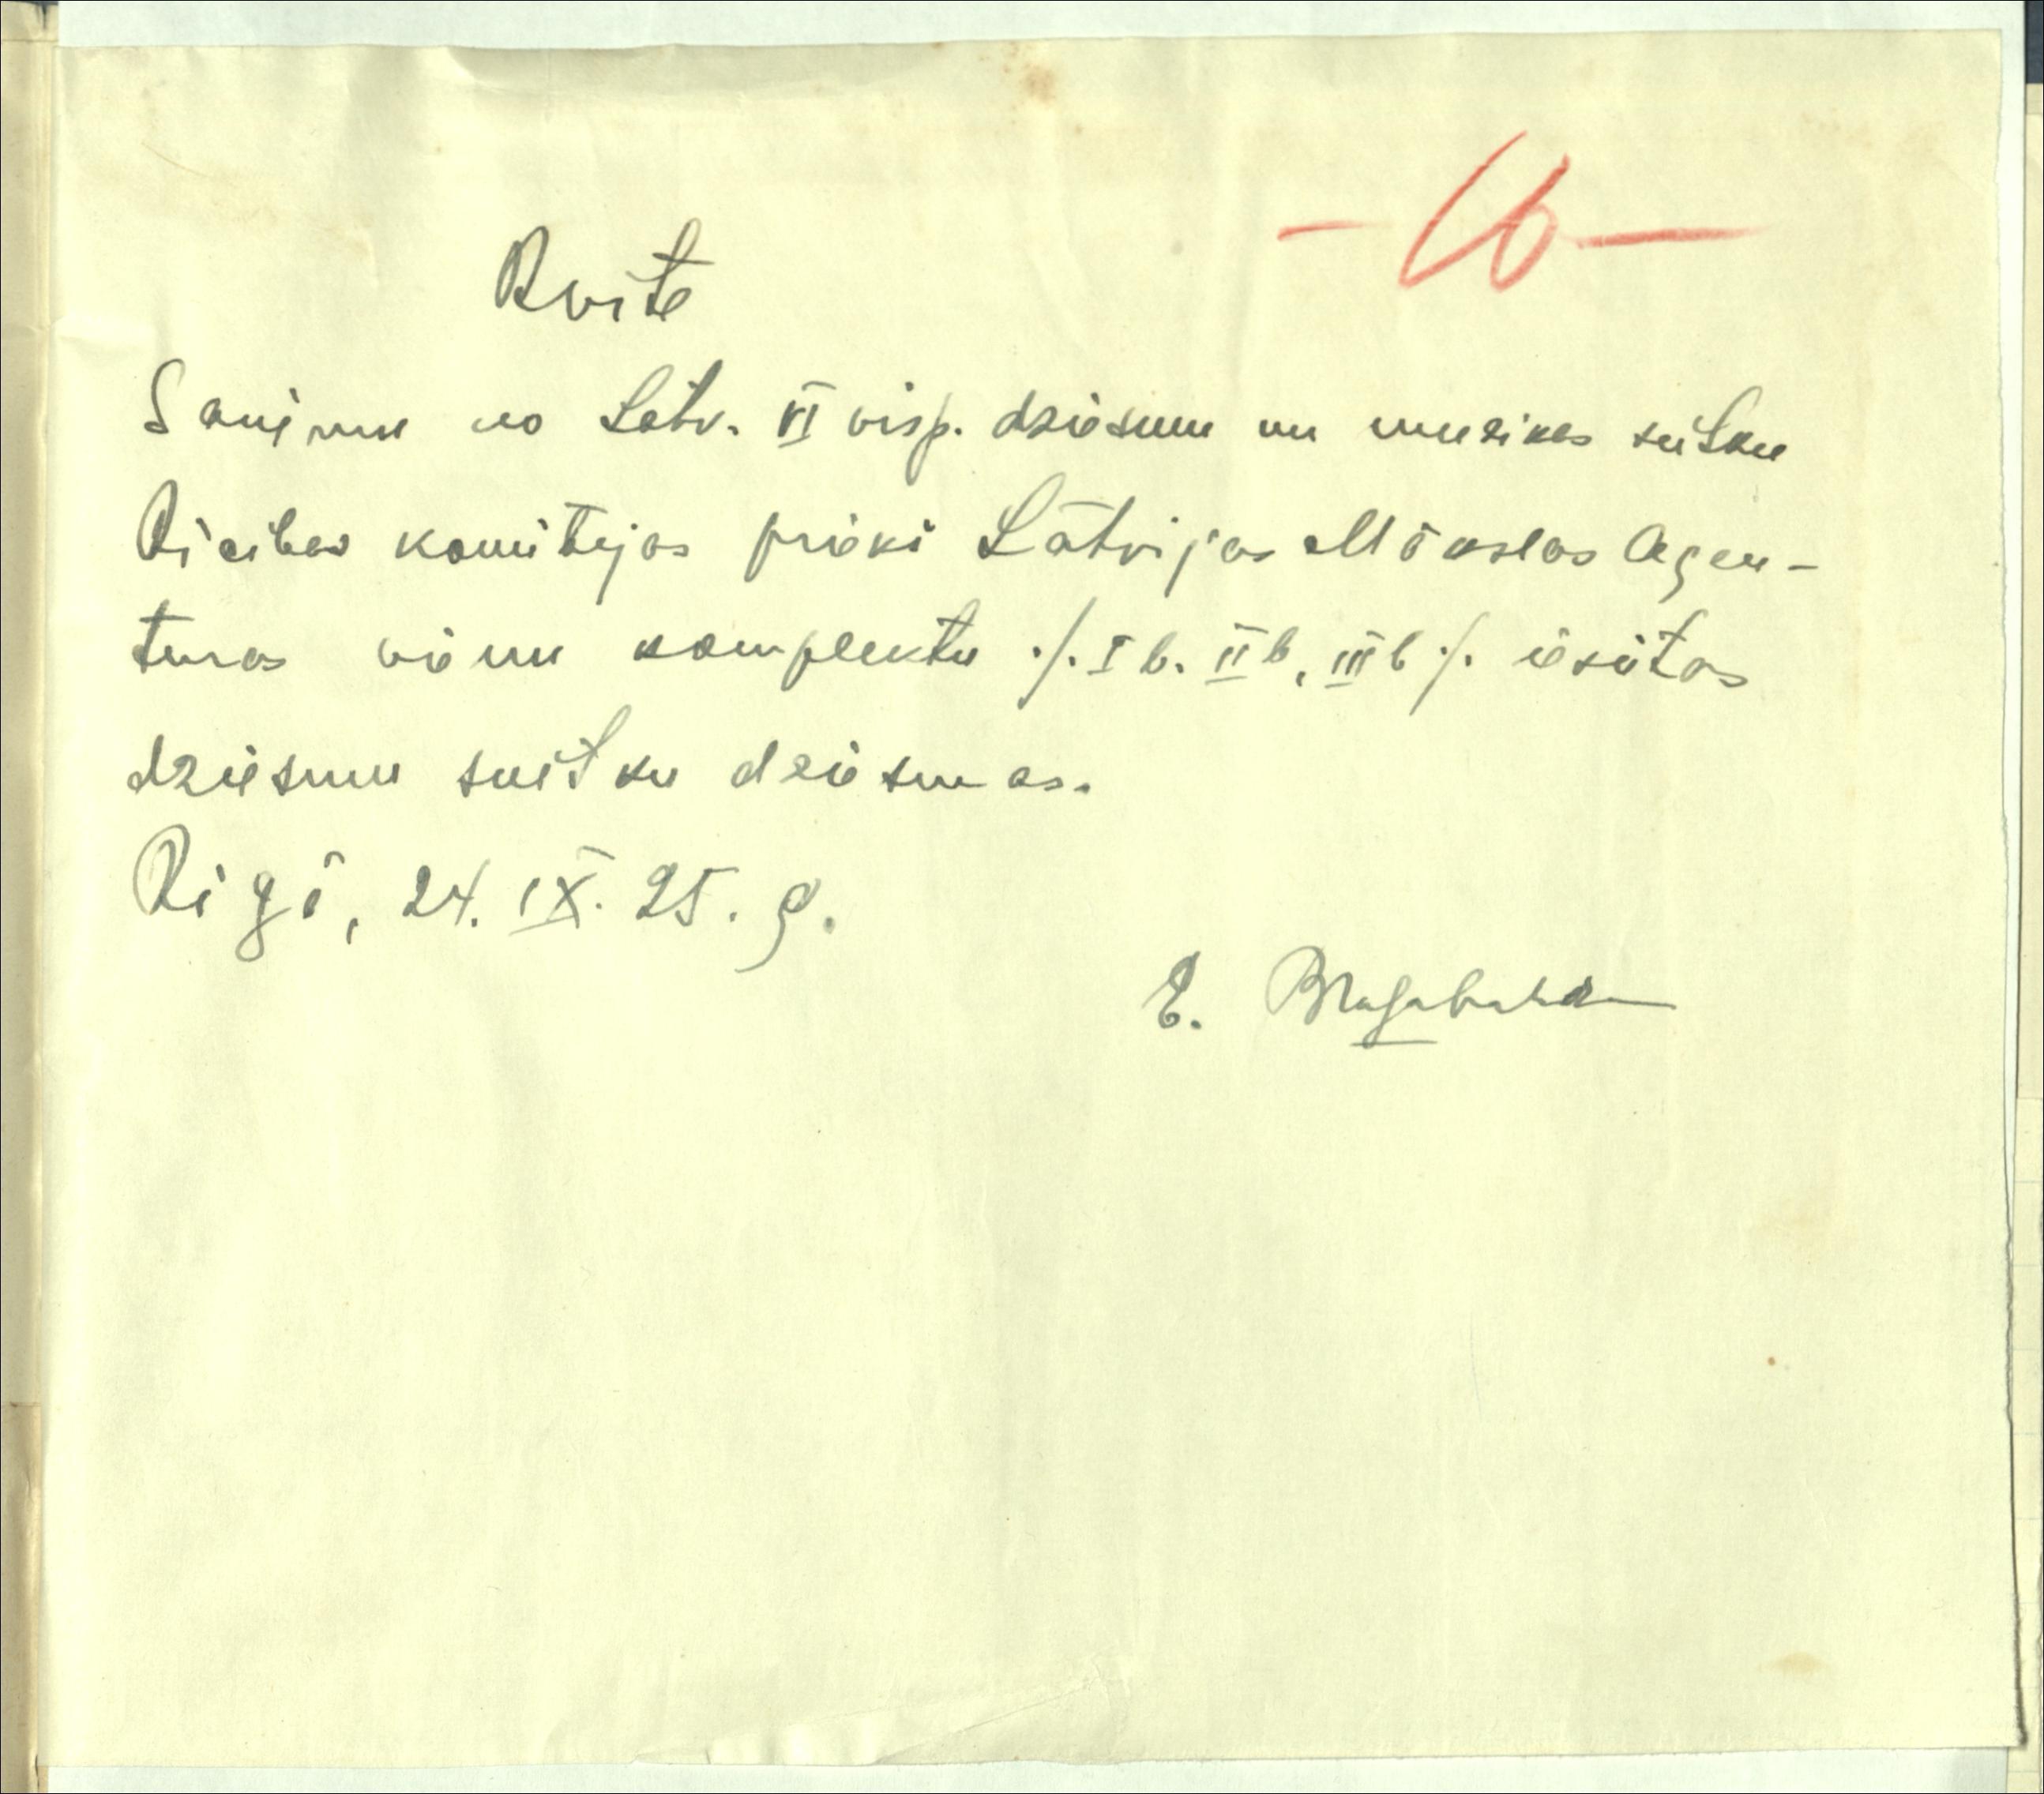 -16-
Kvite
Saņēmu no Latv. VI visp. dziesmu un muzikas svētku
Rīcibas komitejas priekš Latvijas Mākslas Agen-
turas vienu komplektu ./. I b. II b, III b ./. iesūtas
dziesmu svētku dziesmas.
Rīgā, 24. IX. 25. g.
E.